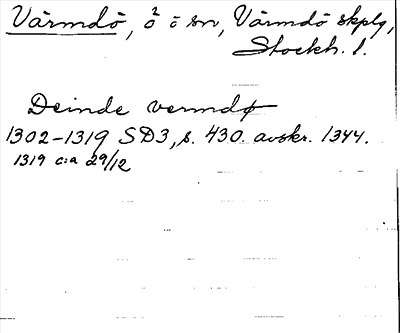 Värmdö, ö² o sn, Värmdö skplg,
Stockh. l.
Deinde vermdø
1302-1319 SD3, s. 430. avskr. 1344.
1319 c:a 29/12